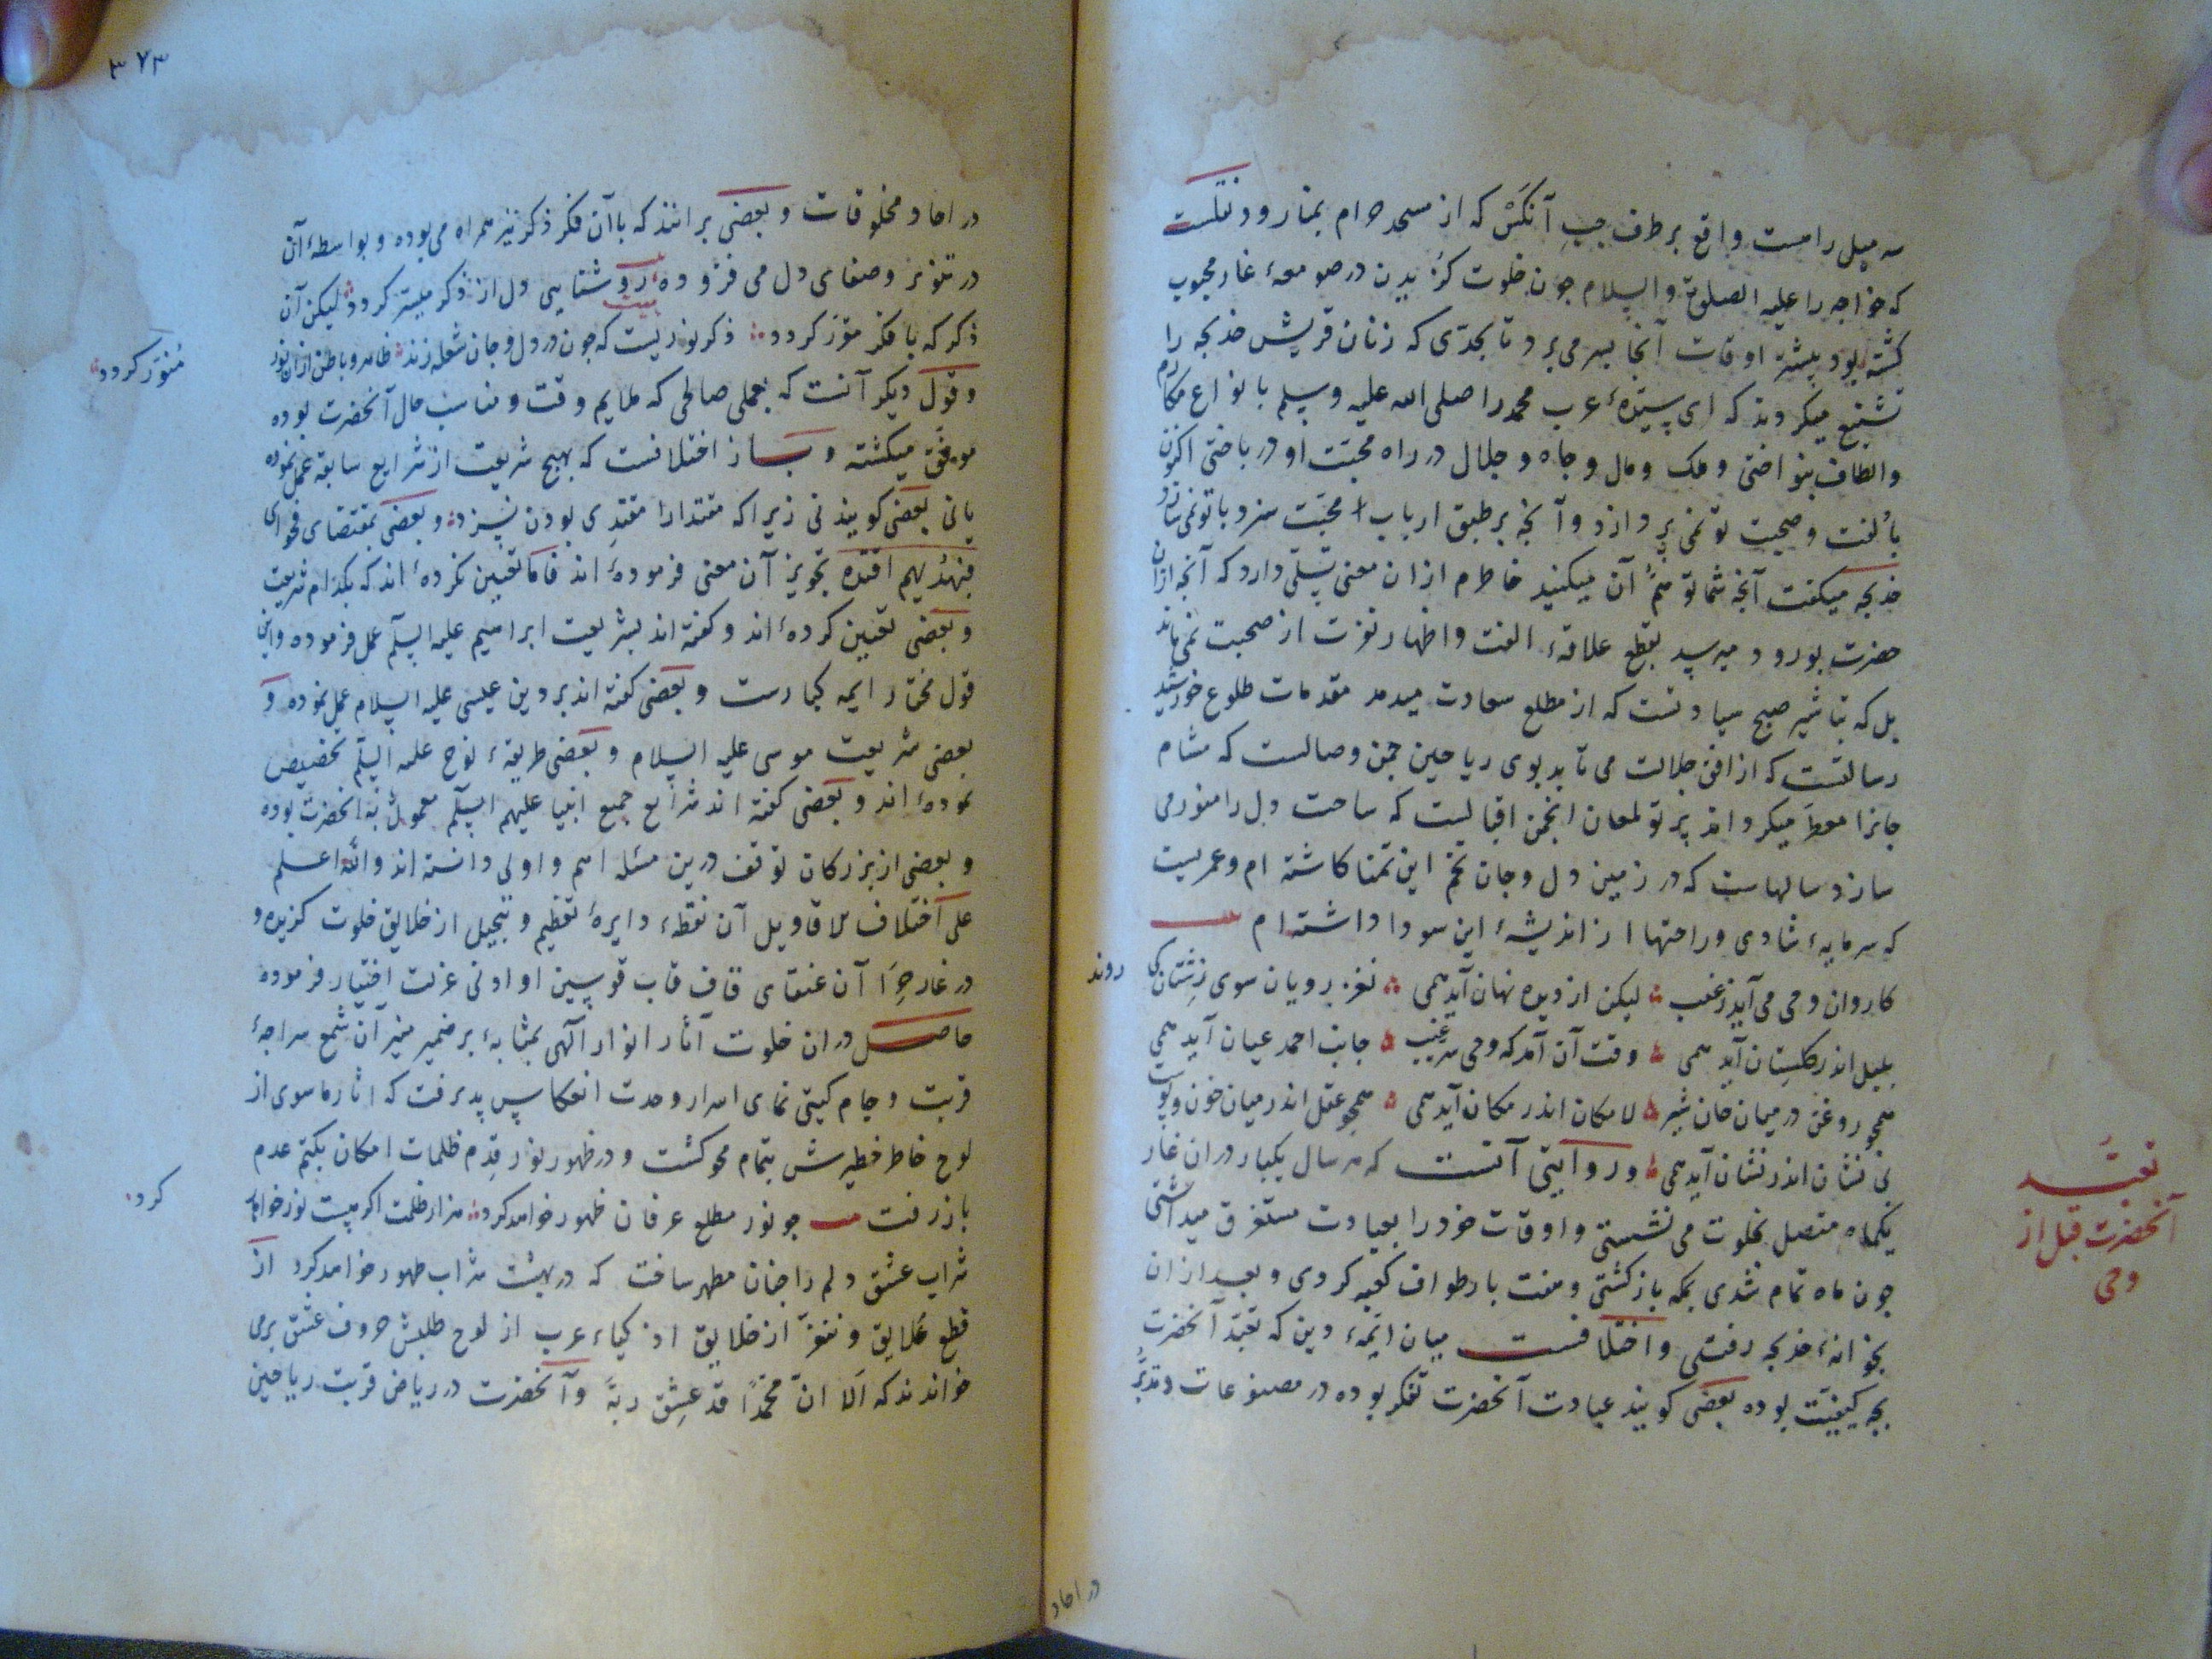 سه میل راهست واقع بر طرف چپ آنکس که از مسجد حرام بمنا رود نقلست
که خواجه را علیه الصلوة والسلام چون خلوت گزیدن در صومعهٔ غار محبوب
گشته بود بیشتر اوقات آنجا بسر می برد تا بحدّی که زنان قریش خدیجه را
تشنیع میکردند که ای سیّدهٔ عرب محمد را صلی الله علیه وسلم بانواع مکارم
والطاف بنواختی و ملک و مال و جاه و جلال در راه محبّت او درباختی اکنون
بأُلفت و صحبت تو نمی پردازد و آنچه بر طبق ارباب محبّت سزد با تو نمی سازد
خدیجه میگفت آنچه شما توهّم آن میکنید خاطرم ازان معنی تسلّی دارد که آنچه ازان
حضرت بورود میرسد بقطع علاقهٔ الفت و اظهار نفرت از صحبت نمی ماند
بل که تباشیر صبح سیادتست که از مطلع سعادت میدمد مقدمات طلوع خورشید
رسالتست که از افق جلالت می تابد بوی ریاحین چمن وصالست که مشام
جانرا معطّر میگرداند پرتو لمعان انجمن اقبالست که ساحت دل را منوّر می
سازد سالهاست که در زمین دل و جان تخم این تمنا کاشته ام و عمریست
که سرمایهٔ شادی و راحتها از اندیشهٔ این سودا داشته ام
کاروان وحی می آید ز غیب لیکن از دیده نهان آید همی نغز رویان سوی زشتان کی روند
بلبل اندر گلستان آید همی وقت آن آمد که وحی سر غیب جانب احمد عیان آید همی
همچو روغن در میان جان شیر لامکان اندر مکان آید همی همچو عقل اندر میان خون و پوست
بی نشان اندر نشان آید همی و روایتی آنست که هر سال یکبار دران غار
یکماه متصل بخلوت می نشستی و اوقات خود را بعبادت مستغرق میداشتی
چون ماه تمام شدی بمکه بازگشتی و هفت بار طواف کعبه کردی و بعد ازان
بخانهٔ خدیجه رفتی و اختلافست میان ائمّهٔ دین که تعبّد آنحضرت
بچه کیفیّت بوده بعضی گویند عبادت آنحضرت تفکر بوده در مصنوعات و تدبّر
تعبّد
آنحضرت قبل از
وحی
در احاد
۳۷۳
در احاد مخلوقات و بعضی برانند که با آن فکر ذکر نیز همراه می بوده و بواسطهٔ آن
در تنویر و صفای دل می فزوده روشنایی دل از ذکر میسّر گردد لیکن آن
بیت
ذکر که با فکر مقرّر گردد ذکر نوریست که چون در دل و جان شعله زند ظاهر و باطن ازان نور
مُنوّر گردد
و قول دیگر آنست که بعملی صالحی که ملایم وقت و مناسب حال آنحضرت بوده
موفّق میگشته و باز اختلافست که بهیچ شریعت از شرایع سابقه عمل نموده
یا نی بعضی گویند نی زیرا که مقتدا را مقتدی بودن نسزد و بعضی بمقتضای فحوای
فبهدیهم اقتده تجویز آن معنی فرموده اند فاما تعیین نکرده اند که بکدام شریعت
و بعضی تعیین کرده اند و گفته اند بشریعت ابراهیم علیه السلم عمل فرموده و این
قول مختار ایمه کبارست و بعضی گفته اند بر دین عیسی علیه السلام عمل نموده و
بعضی شریعت موسی علیه السلام و بعضی طریقهٔ نوح علیه السلم تخصیص
نموده اند و بعضی گفته اند شرایع جمیع انبیا علیهم السلم معمول به آنحضرت بوده
و بعضی از بزرگان توقف درین مسئله اسم و اولی دانسته اند والله اعلم
علی اختلاف الاقاویل آن نقطهٔ دایرهٔ تعظیم و تبجیل از خلایق خلوت گزیده و
در غار حِرا آن عنقای قاف قاب قوسین او ادنی عزلت اختیار فرموده
حاصل دران خلوت آثار انوار آلهی بمثابهٔ بر ضمیر منیر آن شمع سراچهٔ
قربت و جام گیتی نمای اسرار وحدت انعکاس پذیرفت که اثار ماسوی از
لوح خاطر خطیرش بتمام محو گشت و در ظهور نور قِدم ظلمات امکان بکتم عدم
باز رفت چو نور مطلع عرفان ظهور خواهد کرد هزار ظلمت اگر هست نور خواهد
کرد
شراب عشق دلم را چنان مطهر ساخت که در بهشت شراب طهور خواهد کرد از
قطع علایق و نفرّ از خلایق اذکیاء عرب از لوح طلبش حروف عشق برمی
خواندند که اَلا انّ محمّدًا قد عشِق ربّهٔ و آنحضرت در ریاض قربت ریاحین